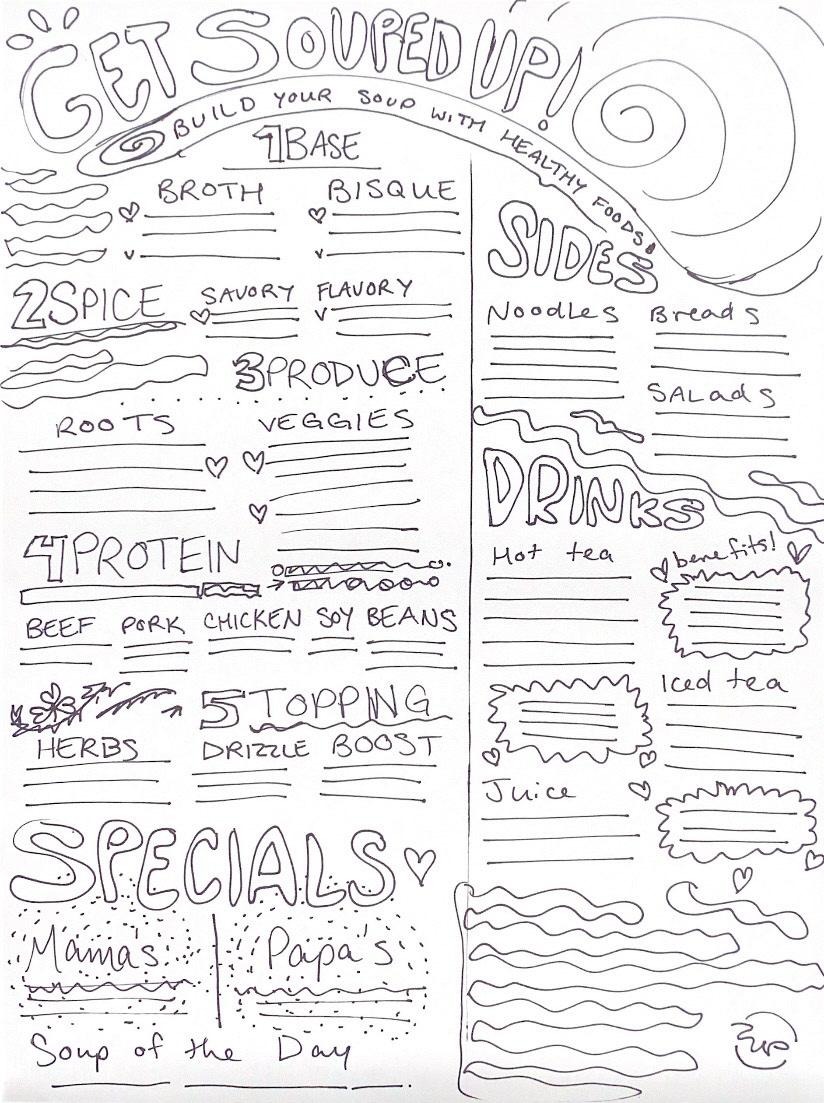 GET SOUPED UP!
BUILD YOUR SOUP WITH HEALTHY FOODS!
1 BASE
BROTH BISQUE
2 SPICE SAVORY FLAVORY
3 PRODUCE
ROOTS VEGGIES
4 PROTEIN
BEEF PORK CHICKEN SOY BEANS
5 TOPPING
HERBS DRIZZLE BOOST
SPECIALS
Mama's Papa's
Soup of the Day
SIDES
NoodLeS Breads
SALads
DRINKS
Hot tea benefits!
Iced tea
Juice